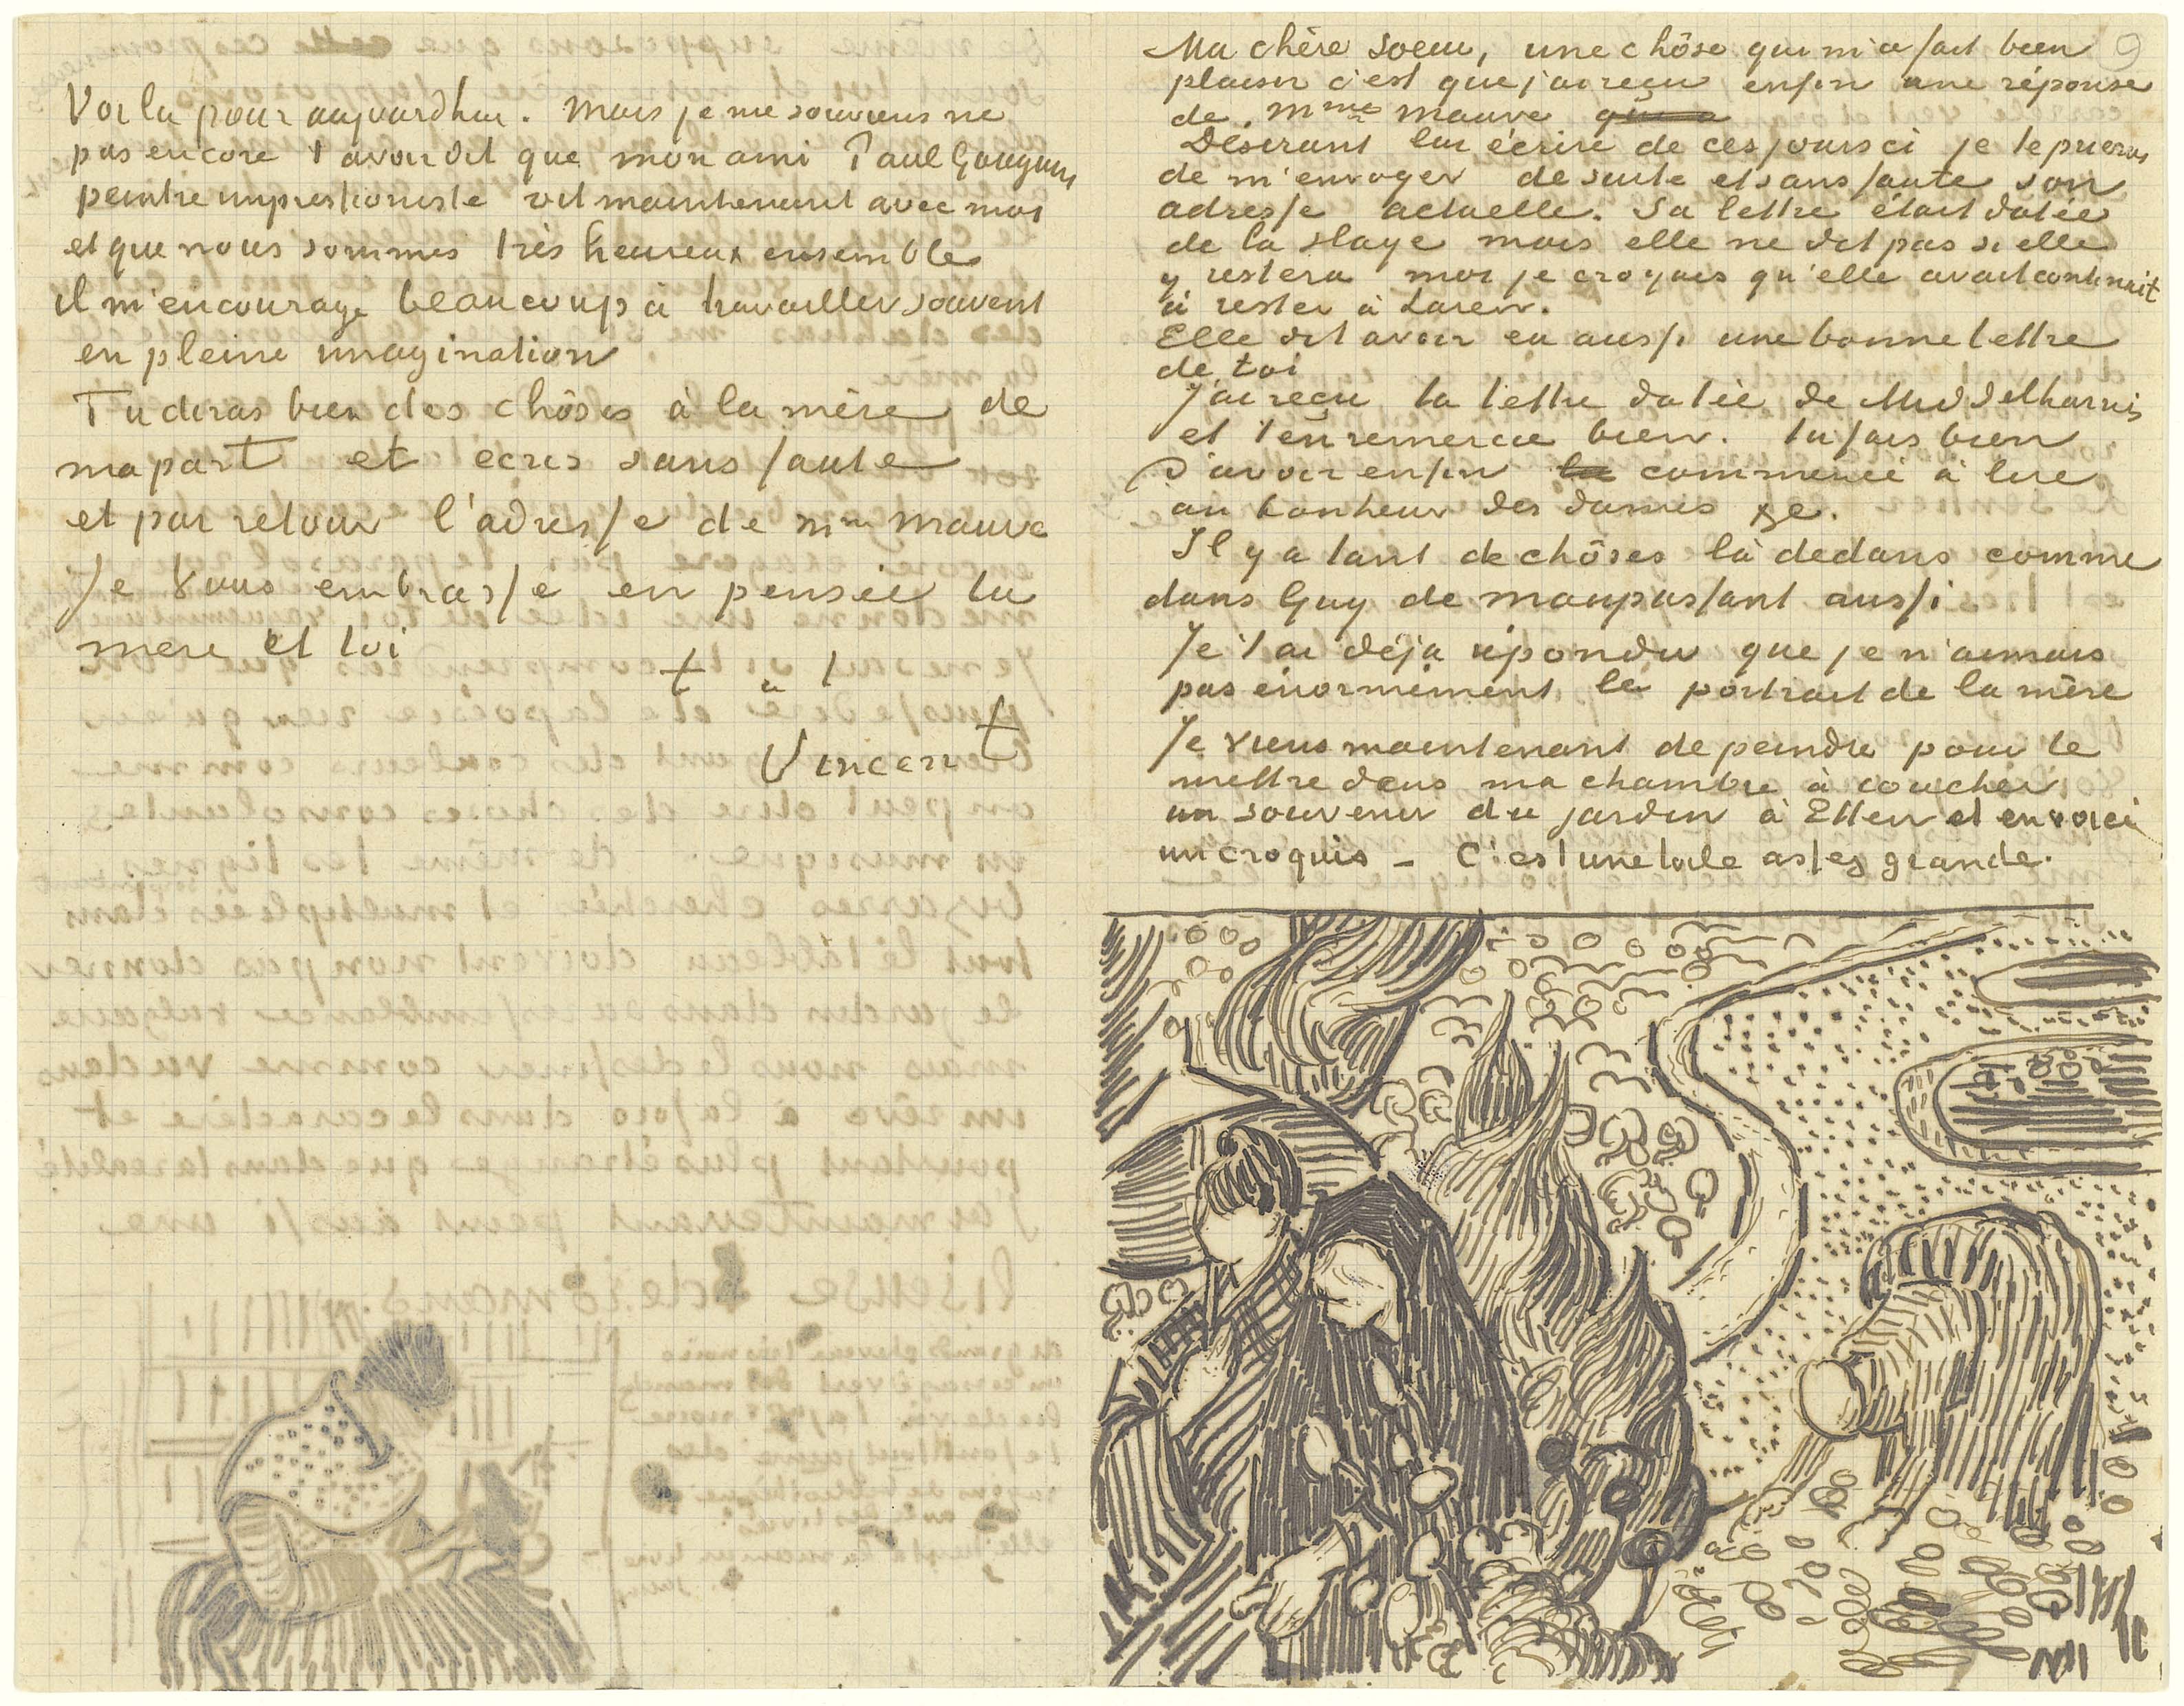 Ma chère soeur, une chôse qui m'a fait bien 9
plaisir c'est que j'ai reçu enfin une réponse
de Mme Mauve
Désirant lui écrire de ces jours ci je te prierais
de m'envoyer de suite et sans faute son
adresse actuelle. Sa lettre était datée
de la Haye mais elle ne dit pas si elle
y restera moi je croyais qu'elle avait continuit
à rester à Laren.
Elle dit avoir eu aussi une bonne lettre
de toi
J'ai reçu ta lettre datée de Middelharnis
et t'en remercie bien. tu fais bien
d'avoir enfin commencé à lire
au bonheur des dames &c.
Il y a tant de chôses là dedans comme
dans Guy de Maupassant aussi.
Je t'ai déjà répondu que je n'aimais
pas enormement le portrait de la mère
Je viens maintenant de peindre pour le
mettre dans ma chambre à coucher
un souvenir du jardin à Etten et en voici
un croquis – C'est une toile assez grande.
Voila pour aujourdhui. Mais je me souviens ne
pas encore t'avoir dit que mon ami Paul Gauguin
peintre impressioniste vit maintenant avec moi
et que nous sommes très heureux ensemble
il m'encourage beaucoup à travailler souvent
en pleine imagination
Tu diras bien des chôses à la mère de
ma part et ecris sans faute
et par retour l'adresse de Mme Mauve
Je vous embrasse en pensée la
mere et toi
t. à t.
Vincent